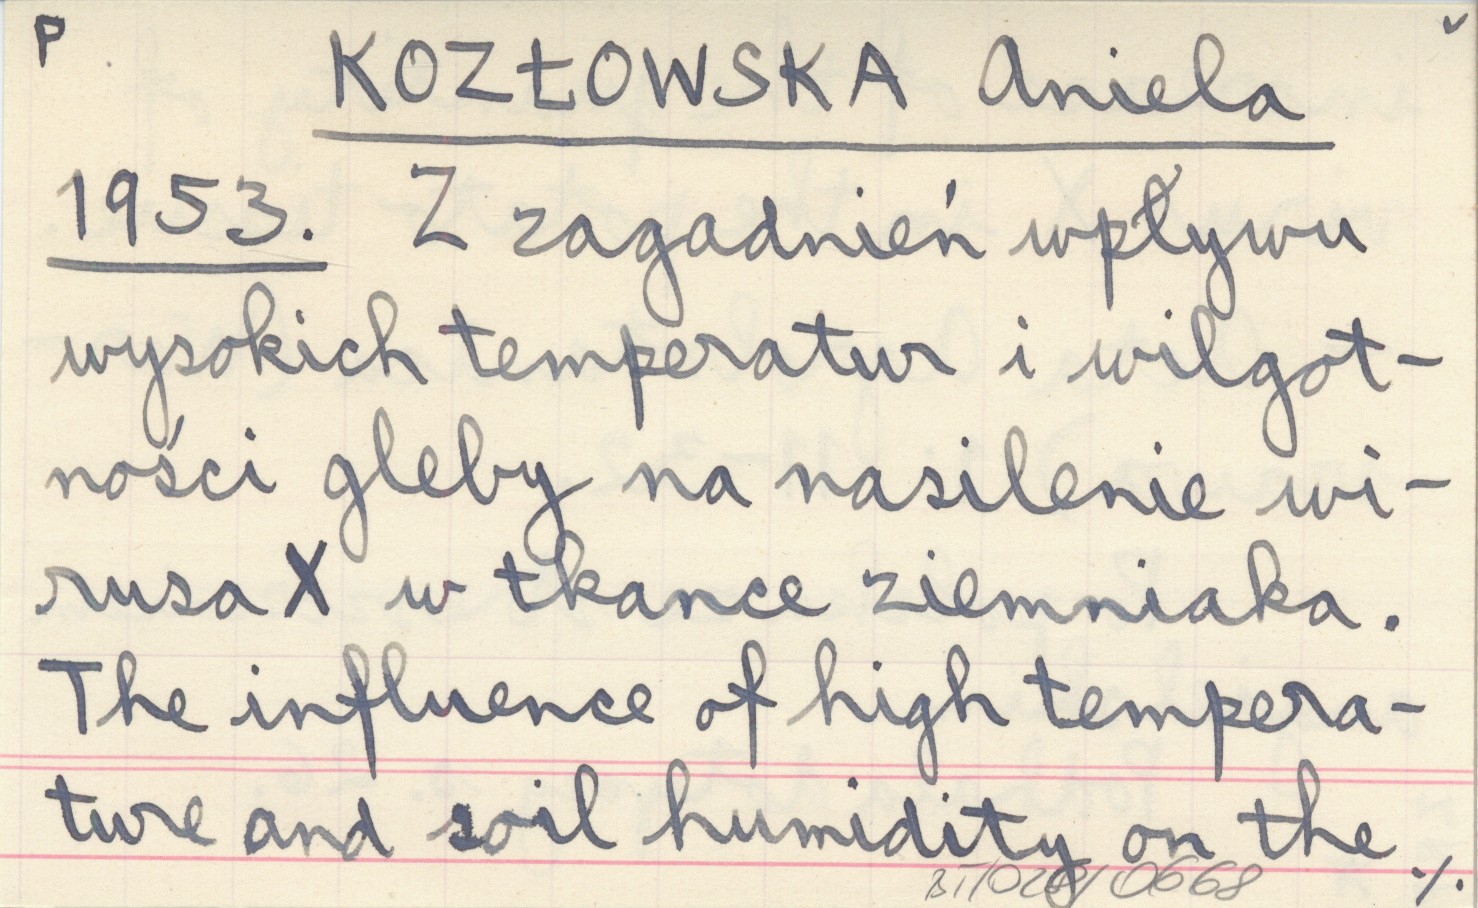 P
KOZŁOWSKA Aniela
1953. Z zagadnień wpływu
wysokich temperatur i wilgot-
ności gleby na nasilenie wi-
rusa X w tkance ziemniaka.
The influence of high tempera-
ture and soil humidity on the
./.